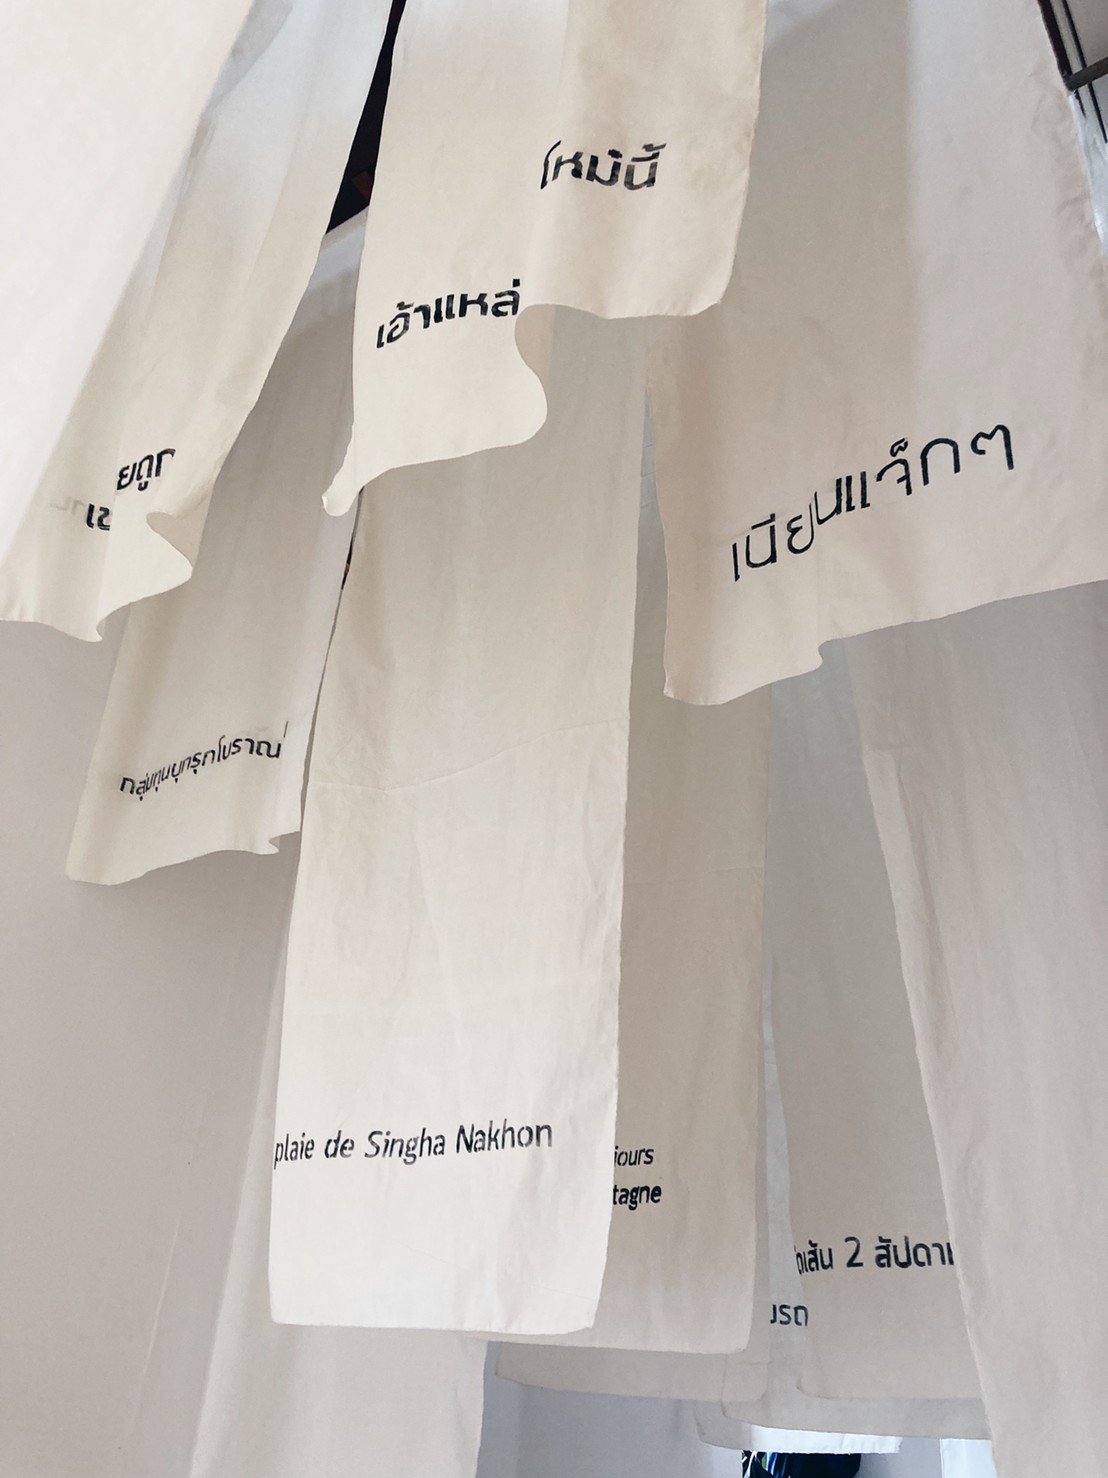 โหม๋นี้
เอ้าแหล่
ยถูก
เนียนแจ็กๆ
กลุ่มทุนบุกรุกโบราณ
plaie de Singha Nakhon
jours
tagne
เส้น 2 สัปดา
บรถ